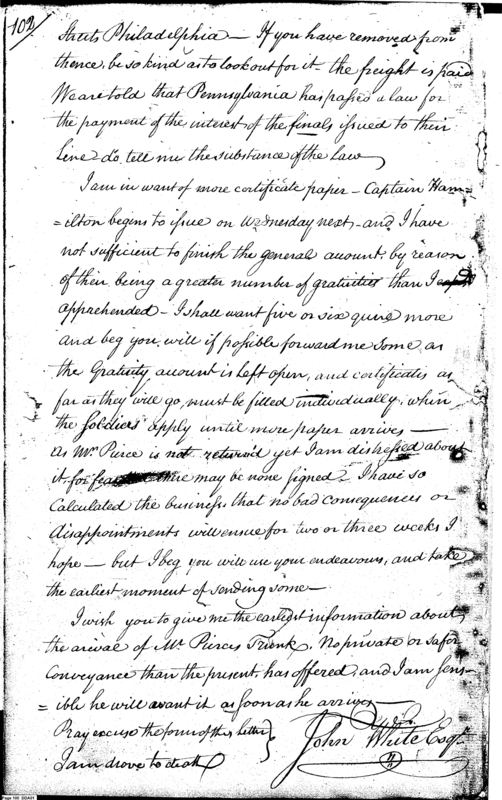 102
Streets Philadelphia — If you have removed from
thence, be so kind as to look out for it — the freight is paid
We are told that Pennsylvania has passed a law for
the payment of the interest of the finals issued to their
Line — do, tell me the substance of the Law
I am in want of more certificate paper — Captain Ham=
=ilton begins to issue on Wednesday next — and I have
not sufficient to finish the general account, by reason
of their being a greater number of gratuities than I
apprehended — I shall want five or six quire more
and beg you will if possible forward me some, as
the Gratuity account is left open, and certificates as
far as they will go, must be filled individually, when
the Soldiers apply until more paper arrives —
As Mr. Pierce is not return'd yet I am distressed about
it for fear there may be none signed — I have so
Calculated the business that no bad consequences or
disappointments will ensue for two or three weeks I
hope — but I beg you will use your endeavours, and take
the earliest moment of sending some —
I wish you to give me the earliest information about
the arival of Mr. Pierces Trunk, No private or safer
Conveyance than the present has offered, and I am Sens=
=ible he will want it as soon as he arrives —
Pray excuse the form of this Letter
I am drove to death
John White Esqr.